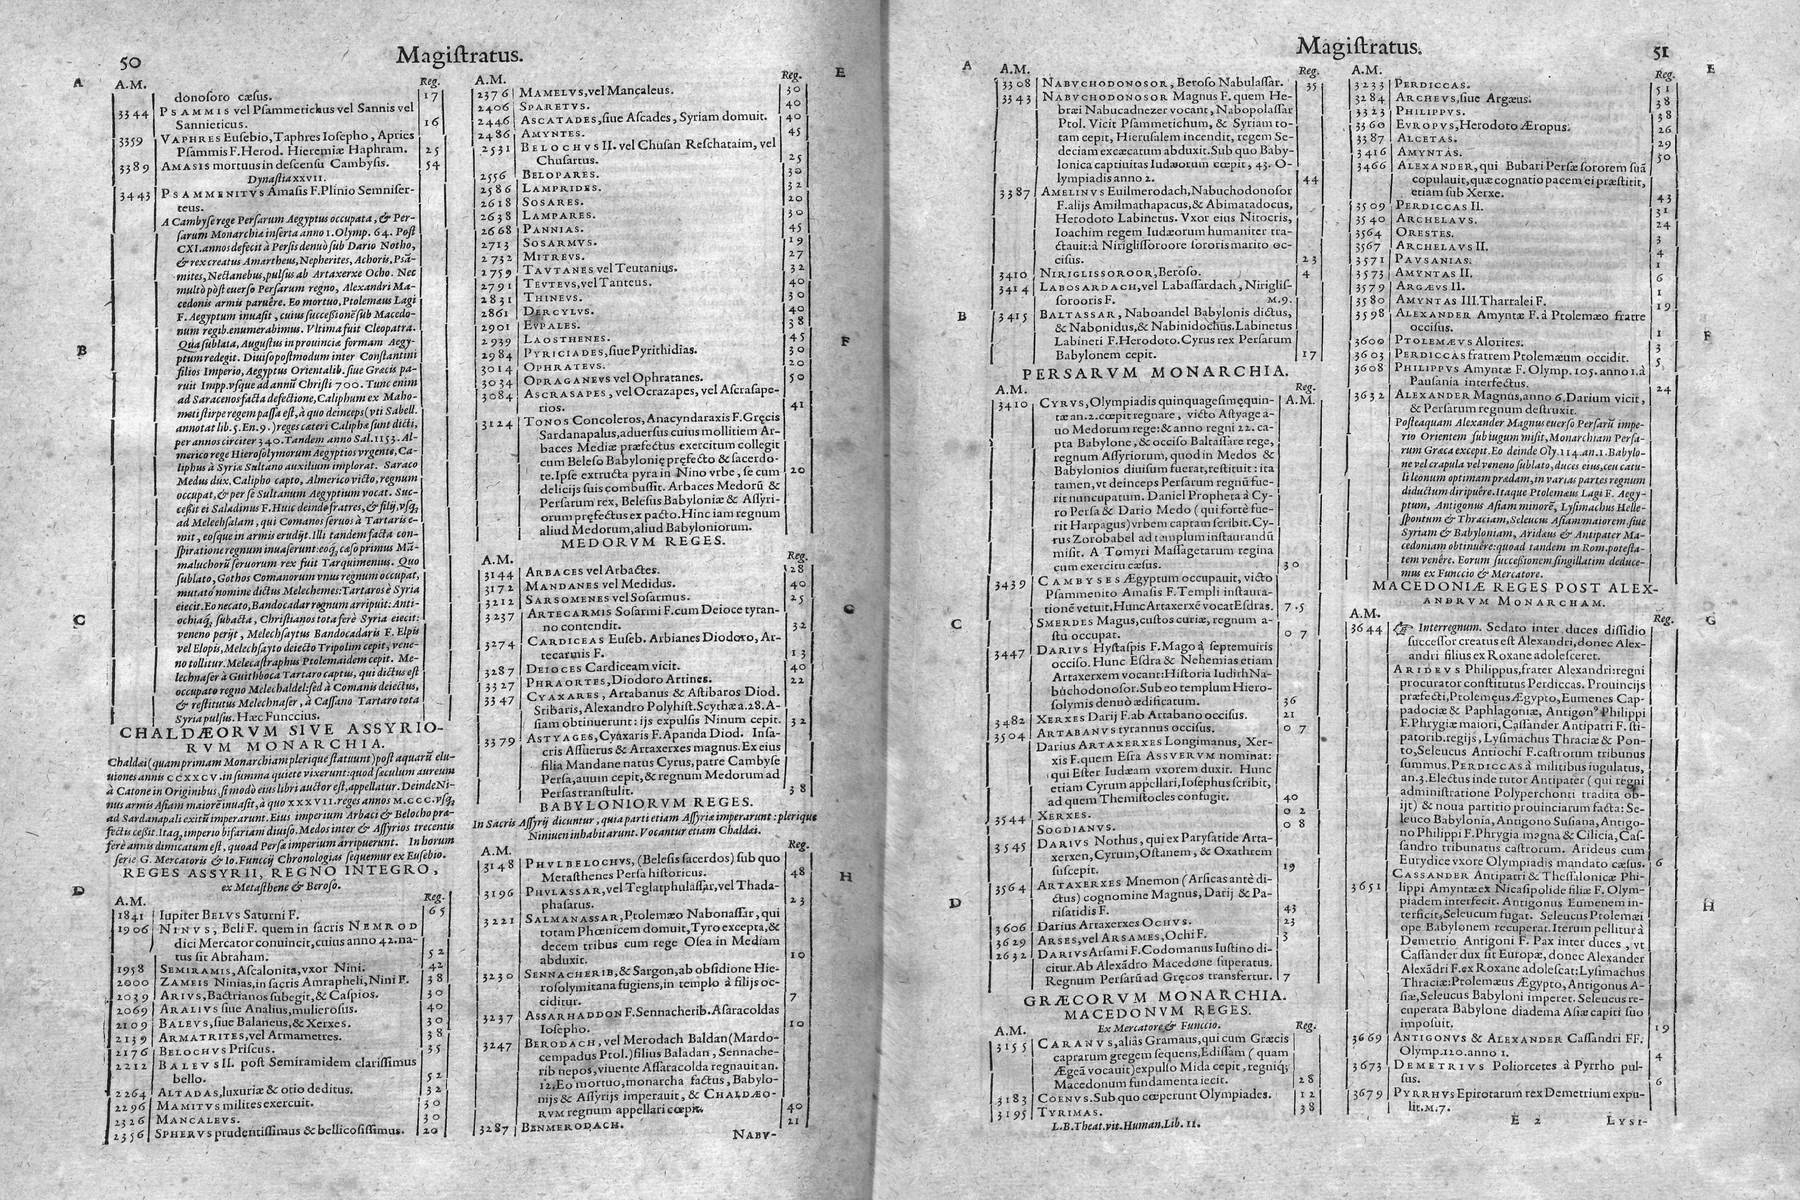 50
Magistratus.
A
A.M.
Reg.
donosoro cæsus.
17
3344 PSAMMIS vel Psammetichus vel Sannis vel
Sannieticus.
16
3359 VAPHRES Eusebio, Taphres Iosepho, Apries
Psammis F. Herod. Hieremiæ Haphram.
25
3389 AMASIS mortuus in descensu Cambysis. 54
Dynastia XXVII.
3443 PSAMMENITVS Amasis F. Plinio Semniser-
teus.
A Cambyse rege Persarum Aegyptus occupata, & Per-
sarum Monarchia inserta anno 1. Olymp. 64. Post
CXI. annos defecit à Persis denuò sub Dario Notho,
& rex creatus Amartheus, Nepherites, Achoris, Psã-
mites, Nectanebus, pulsus ab Artaxerxe Ocho. Nec
multò pòst euerso Persarum regno, Alexandri Ma-
cedonis armis paruêre. Eo mortuo, Ptolemæus Lagi
F. Aegyptum inuasit, cuius successionẽ sub Macedo-
num regib. enumerabimus. Vltima fuit Cleopatra.
B
Qua sublata, Augustus in prouinciæ formam Aegy-
ptum redegit. Diuiso postmodum inter Constantini
filios Imperio, Aegyptus Orientalib. siue Græcis pa-
ruit Impp. vsque ad annũ Christi 700. Tunc enim
ad Saracenos facta defectione, Caliphum ex Maho-
meti stirpe regem passa est, à quo deinceps (vti Sabell.
annotat lib. 5. En. 9.) reges cæteri Caliphæ sunt dicti,
per annos circiter 340. Tandem anno Sal. 1153. Al-
merico rege Hierosolymorum Aegyptios vrgente, Ca-
liphus à Syriæ Sultano auxilium implorat. Saraco
Medus dux, Calipho capto, Almerico victo, regnum
occupat, & per se Sultanum Aegyptium vocat. Suc-
cessit ei Saladinus F. Huic deinde fratres, & filij, vsq;
ad Melechsalam, qui Comanos seruos à Tartaris e-
mit, eosque in armis erudijt. Illi tandem facta con-
spiratione regnum inuaserunt: eoq; cæso primus Mã-
maluchorũ seruorum rex fuit Tarquimenius. Quo
sublato, Gothos Comanorum vnus regnum occupat,
mutato nomine dictus Melechemes: Tartaros è Syria
C
eiecit. Eo necato, Bandocadar regnum arripuit: Anti-
ochiaq; subacta, Christianos tota ferè Syria eiecit:
veneno perijt, Melechsaytus Bandocadaris F. Elpis
vel Elopis, Melechsayto deiecto Tripolim cepit, vene-
no tollitur. Melecastraphus Ptolemaidem cepit. Me-
lechnaser à Guithboca Tartaro captus, qui dictus est
occupato regno Melechaldel: sed à Comanis deiectus,
& restitutus Melechnaser, à Cassano Tartaro tota
Syria pulsus. Hæc Funccius.
CHALDÆORVM SIVE ASSYRIO-
RVM MONARCHIA.
Chaldæi (quam primam Monarchiam plerique statuunt) post aquarũ elu-
uiones annis CCXXCV. in summa quiete vixerunt: quod sæculum aureum
à Catone in Originibus, si modò eius libri auctor est, appellatur. Deinde Ni-
nus armis Asiam maiorẽ inuasit, à quo XXXVII. reges annos M.CCC. vsq;
ad Sardanapali exitũ imperarunt. Eius imperium Arbaci & Belocho præ-
fectis cessit. Itaq; imperio bifariam diuiso. Medos inter & Assyrios trecentis
ferè annis dimicatum est, quoad Persæ imperium arripuerunt. In horum
serie G. Mercatoris & Io. Funccij Chronologias sequemur ex Eusebio.
REGES ASSYRII, REGNO INTEGRO,
ex Metasthene & Beroso.
D
A.M.
Reg.
1841 Iupiter BELVS Saturni F. 65
1906 NINVS, Beli F. quem in sacris NEMROD
dici Mercator conuincit, cuius anno 42. na-
tus sit Abraham. 52
1958 SEMIRAMIS, Ascalonita, vxor Nini. 42
2000 ZAMEIS Ninias, in sacris Amrapheli, Nini F. 38
2039 ARIVS, Bactrianos subegit, & Caspios. 30
2069 ARALIVS siue Analius, mulierosus. 40
2109 BALEVS, siue Balaneus, & Xerxes. 30
2139 ARMATRITES, vel Armametres. 38
2176 BELOCHVS Priscus. 35
2212 BALEVS II. post Semiramidem clarissimus
bello. 52
2264 ALTADAS, luxuriæ & otio deditus. 32
2296 MAMITVS milites exercuit. 30
2326 MANCALEVS. 30
2356 SPHERVS prudentissimus & bellicosissimus. 20
A.M.
Reg.
E
2376 MAMELVS, vel Mancaleus. 30
2406 SPARETVS. 40
2446 ASCATADES, siue Ascades, Syriam domuit. 40
2486 AMYNTES. 45
2531 BELOCHVS II. vel Chusan Reschataim, vel
Chusartus. 25
2556 BELOPARES. 30
2586 LAMPRIDES. 32
2618 SOSARES. 20
2638 LAMPARES. 30
2668 PANNIAS. 45
2713 SOSARMVS. 19
2732 MITREVS. 27
2759 TAVTANES vel Teutanius. 32
2791 TEVTEVS, vel Tanteus. 40
2831 THINEVS. 30
2861 DERCYLVS. 40
2901 EVPALES. 38
2939 LAOSTHENES. 45
F
2984 PYRICIADES, siue Pyrithidias. 30
3014 OPHRATEVS. 20
3034 OPRAGANEVS vel Ophratanes. 50
3084 ASCRASAPES, vel Ocrazapes, vel Ascrasape-
rios. 41
3124 TONOS Concoleros, Anacyndaraxis F. Gręcis
Sardanapalus, aduersus cuius mollitiem Ar-
baces Mediæ præfectus exercitum collegit
cum Beleso Babylonię pręfecto & sacerdo-
te. Ipse extructa pyra in Nino vrbe, se cum 20
delicijs suis combussit. Arbaces Medorũ &
Persarum rex, Belesus Babyloniæ & Assyri-
orum pręfectus ex pacto. Hinc iam regnum
aliud Medorum, aliud Babyloniorum.
MEDORVM REGES.
A.M.
Reg.
3144 ARBACES vel Arbactes. 28
3172 MANDANES vel Medidus. 40
3212 SARSOMENES vel Sosarmus. 25
G
3237 ARTECARMIS Sosarmi F. cum Deioce tyran-
no contendit. 32
3274 CARDICEAS Euseb. Arbianes Diodoro, Ar-
tecarmis F. 13
3287 DEIOCES Cardiceam vicit. 40
3327 PHRAORTES, Diodoro Artines. 22
3347 CYAXARES, Artabanus & Astibaros Diod.
Stibaris, Alexandro Polyhist. Scythæ a. 28. A-
siam obtinuerunt: ijs expulsis Ninum cepit. 32
3379 ASTYAGES, Cyaxaris F. Apanda Diod. In sa-
cris Assuerus & Artaxerxes magnus. Ex eius
filia Mandane natus Cyrus, patre Cambyse
Persa, auum cepit, & regnum Medorum ad
Persas transtulit. 38
BABYLONIORVM REGES.
In Sacris Assyrij dicuntur, quia parti etiam Assyriæ imperarunt: plerique
Niniuen inhabitarunt. Vocantur etiam Chaldæi.
A.M.
Reg.
3148 PHVLBELOCHVS, (Belesis sacerdos) sub quo
Metasthenes Persa historicus. 48
H
3196 PHVLASSAR, vel Teglatphulassar, vel Thada-
phasarus. 23
3221 SALMANASSAR, Ptolemæo Nabonassar, qui
totam Phœnicem domuit, Tyro excepta, &
decem tribus cum rege Osea in Mediam
abduxit. 10
3230 SENNACHERIB, & Sargon, ab obsidione Hie-
rosolymitana fugiens, in templo à filijs oc-
ciditur. 7
3237 ASSARHADDON F. Sennacherib. Asaracoldas
Iosepho. 10
3247 BERODACH, vel Merodach Baldan (Mardo-
cempadus Ptol.) filius Baladan, Sennache-
rib nepos, viuente Assaracolda regnauit an.
12. Eo mortuo, monarcha factus, Babylo-
nijs & Assyrijs imperauit, & CHALDÆO-
RVM regnum appellari cœpit. 40
3287 BENMERODACH. 21
NABV-
Magistratus.
51
A
A.M.
Reg.
3308 NABVCHODONOSOR, Beroso Nabulassar. 35
3343 NABVCHODONOSOR Magnus F. quem He-
bræi Nabucadnezer vocant, Nabopolassar
Ptol. Vicit Psammetichum, & Syriam to-
tam cepit, Hierusalem incendit, regem Se-
deciam excæcatum abduxit. Sub quo Baby-
lonica captiuitas Iudæorum cœpit, 43. O-
lympiadis anno 2. 44
3387 AMELINVS Euilmerodach, Nabuchodonosor
F. alijs Amilmathapacus, & Abimatadocus,
Herodoto Labinetus. Vxor eius Nitocris,
Ioachim regem Iudæorum humaniter tra-
ctauit: à Niriglissoroore sororis marito oc-
cisus. 23
3410 NIRIGLISSOROOR, Beroso. 4
3414 LABOSARDACH, vel Labassardach, Niriglis-
sorooris F. M.9.
B
3415 BALTASSAR, Naboandel Babylonis dictus,
& Nabonidus, & Nabinidochus. Labinetus
Labineti F. Herodoto. Cyrus rex Persarum
Babylonem cepit. 17
PERSARVM MONARCHIA.
A.M.
Reg.
3410 CYRVS, Olympiadis quinquagesimęquin- A.M.
tæ an. 2. cœpit regnare, victo Astyage a-
uo Medorum rege: & anno regni 22. ca-
pta Babylone, & occiso Baltassare rege,
regnum Assyriorum, quod in Medos &
Babylonios diuisum fuerat, restituit: ita
tamen, vt deinceps Persarum regnũ fue-
rit nuncupatum. Daniel Propheta à Cy-
ro Persa & Dario Medo (qui fortè fue-
rit Harpagus) vrbem captam scribit. Cy-
rus Zorobabel ad templum instaurandũ
misit. A Tomyri Massagetarum regina
cum exercitu cæsus. 30
3439 CAMBYSES Ægyptum occupauit, victo
Psammenito Amasis F. Templi instaura-
tionẽ vetuit. Hunc Artaxerxẽ vocat Esdras. 7.5
C
SMERDES Magus, custos curiæ, regnum a-
stu occupat. 0 7
3447 DARIVS Hystaspis F. Mago à septemuiris
occiso. Hunc Esdra & Nehemias etiam
Artaxerxem vocant: Historia Iudith Na-
buchodonosor. Sub eo templum Hiero-
solymis denuò ædificatum. 36
3482 XERXES Darij F. ab Artabano occisus. 21
3504 ARTABANVS tyrannus occisus. 0 7
Darius ARTAXERXES Longimanus, Xer-
xis F. quem Esra ASSVERVM nominat:
qui Ester Iudæam vxorem duxit. Hunc
etiam Cyrum appellari, Iosephus scribit,
ad quem Themistocles confugit. 40
3544 XERXES. 0 2
SOGDIANVS. 0 8
3545 DARIVS Nothus, qui ex Parysatide Arta-
xerxen, Cyrum, Ostanem, & Oxathrem
suscepit. 19
D
3564 ARTAXERXES Mnemon (Arsicas antè di-
ctus) cognomine Magnus, Darij & Pa-
risatidis F. 43
3606 Darius Artaxerxes OCHVS. 23
3629 ARSES, vel ARSAMES, Ochi F. 3
2632 DARIVS Arsami F. Codomanus Iustino di-
citur. Ab Alexãdro Macedone superatus.
Regnum Persarũ ad Gręcos transfertur. 7
GRÆCORVM MONARCHIA.
MACEDONVM REGES.
Ex Mercatore & Funccio.
A.M.
Reg.
3155 CARANVS, aliâs Gramaus, qui cum Græcis
caprarum gregem sequens, Edissam (quam
Ægeã vocauit) expulso Mida cepit, regniq;
Macedonum fundamenta iecit. 28
3183 COENVS. Sub quo cœperunt Olympiades. 12
3195 TYRIMAS. 38
L.B. Theat. vit. Human. Lib. 11.
A.M.
Reg.
E
3233 PERDICCAS. 51
3284 ARCHEVS, siue Argæus. 38
3323 PHILIPPVS. 38
3360 EVROPVS, Herodoto Æropus. 26
3387 ALCETAS. 29
3416 AMYNTAS. 50
3466 ALEXANDER, qui Bubari Persæ sororem suã
copulauit, quæ cognatio pacem ei præstitit,
etiam sub Xerxe. 43
3509 PERDICCAS II. 31
3540 ARCHELAVS. 24
3564 ORESTES. 3
3567 ARCHELAVS II. 4
3571 PAVSANIAS. 1
3573 AMYNTAS II. 6
3579 ARGÆVS II. 1
3580 AMYNTAS III. Tharralei F. 19
3598 ALEXANDER Amyntæ F. à Ptolemæo fratre
occisus. 1
F
3600 PTOLEMÆVS Alorites. 3
3603 PERDICCAS fratrem Ptolemæum occidit. 5
3608 PHILIPPVS Amyntæ F. Olymp. 105. anno 1. à
Pausania interfectus. 24
3632 ALEXANDER Magnus, anno 6. Darium vicit,
& Persarum regnum destruxit.
Posteaquam Alexander Magnus euerso Persarũ impe-
rio Orientem sub iugum misit, Monarchiam Persa-
rum Græca excepit. Eo deinde Oly. 114. an. 1. Babylo-
ne vel crapula vel veneno sublato, duces eius, ceu catu-
li leonum optimam prædam, in varias partes regnum
diductum diripuêre. Itaque Ptolemæus Lagi F. Aegy-
ptum, Antigonus Asiam minorẽ, Lysimachus Helle-
spontum & Thraciam, Seleucus Asiam maiorem siue
Syriam & Babyloniam, Aridæus & Antipater Ma-
cedoniam obtinuêre: quoad tandem in Rom. potesta-
tem venêre. Eorum successionem singillatim deduce-
mus ex Funccio & Mercatore.
MACEDONIÆ REGES POST ALEX-
ANDRVM MONARCHAM.
A.M.
Reg.
G
3644 ☞ Interregnum. Sedato inter duces dissidio
successor creatus est Alexandri, donec Alex-
andri filius ex Roxane adolesceret.
ARIDEVS Philippus, frater Alexandri: regni
procurator constitutus Perdiccas. Prouincijs
præfecti, Ptolemęus Ægypto, Eumenes Cap-
padociæ & Paphlagoniæ, Antigonꝰ Philippi
F. Phrygiæ maiori, Cassander Antipatri F. sti-
patorib. regijs, Lysimachus Thraciæ & Pon-
to, Seleucus Antiochi F. castrorum tribunus
summus. PERDICCAS à militibus iugulatus,
an. 3. Electus inde tutor Antipater (qui regni
administratione Polyperchonti tradita ob-
ijt) & noua partitio prouinciarum facta: Se-
leuco Babylonia, Antigono Susiana, Antigo-
no Philippi F. Phrygia magna & Cilicia, Cas-
sandro tribunatus castrorum. Arideus cum
Eurydice vxore Olympiadis mandato cæsus. 6
H
3651 CASSANDER Antipatri & Thessalonicæ Phi-
lippi Amyntæ ex Nicasipolide filiæ F. Olym-
piadem interfecit. Antigonus Eumenem in-
terficit, Seleucum fugat. Seleucus Ptolemæi
ope Babylonem recuperat. Iterum pellitur à
Demetrio Antigoni F. Pax inter duces, vt
Cassander dux sit Europæ, donec Alexander
Alexãdri F. ex Roxane adolescat: Lysimachus
Thraciæ: Ptolemæus Ægypto, Antigonus A-
siæ, Seleucus Babyloni imperet. Seleucus re-
cuperata Babylone diadema Asiæ capiti suo
imposuit. 19
3669 ANTIGONVS & ALEXANDER Cassandri FF.
Olymp. 120. anno 1. 4
3673 DEMETRIVS Poliorcetes à Pyrrho pul-
sus. 6
3679 PYRRHVS Epirotarum rex Demetrium expu-
lit. M.7.
E 2
LYSI-